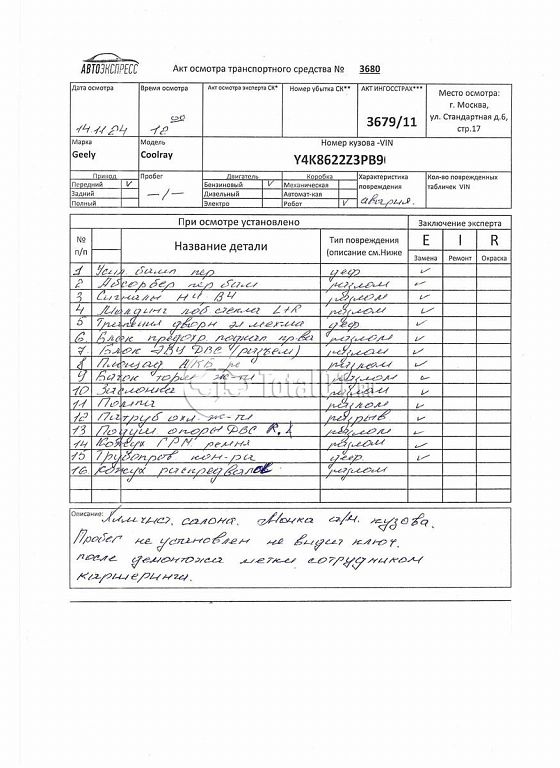 АВТОЭКСПРЕСС
Акт осмотра транспортного средства № 3680
Дата осмотра
Время осмотра
Акт осмотра эксперта СК*
Номер убытка СК**
АКТ ИНГОССТРАХ***
Место осмотра:
г. Москва,
ул. Стандартная д.6,
стр.17
14.11.24
12 00
3679/11
Марка
Модель
Номер кузова -VIN
Geely
Coolray
Y4K8622Z3PB9
Привод
Пробег
Двигатель
Коробка
Характеристика
повреждения
Кол-во поврежденных
табличек VIN
Передний V
Бензиновый V
Механическая
Задний
-/-
Дизельный
Автомат-кая
Полный
Электро
Робот V
аварийн.
При осмотре установлено
Заключение эксперта
№
п/п
Название детали
Тип повреждения
(описание см.Ниже
E I R
Замена Ремонт Окраска
1 Усил бамп пер деф ✓
2 Абсорбер пер бам разлом ✓
3 Сигналы НЧ ВЧ разлом ✓
4 Молдинг лоб стекла L+R разлом ✓
5 Трапеция дворн эл мехма деф ✓
6 Блок предохр подкап пр-ва разлом ✓
7 Блок ЭБУ ДВС (разъем) разлом ✓
8 Площад АКБ разлом ✓
9 Бачок торм ж-ти разлом ✓
10 Заслонка разлом ✓
11 Помпа разлом ✓
12 Патруб охл. ж-ти разрыв ✓
13 Подуш опоры ДВС R. разлом ✓
14 Кожух ГРМ ремня разлом ✓
15 Трубопров кон-ра деф ✓
16 Кожух распредвалов разлом
Total
Описание: Химчист. салона. Мойка а/м. кузова.
Пробег не установлен не видит ключ.
после демонтажа метки сотрудником
каршеринга.